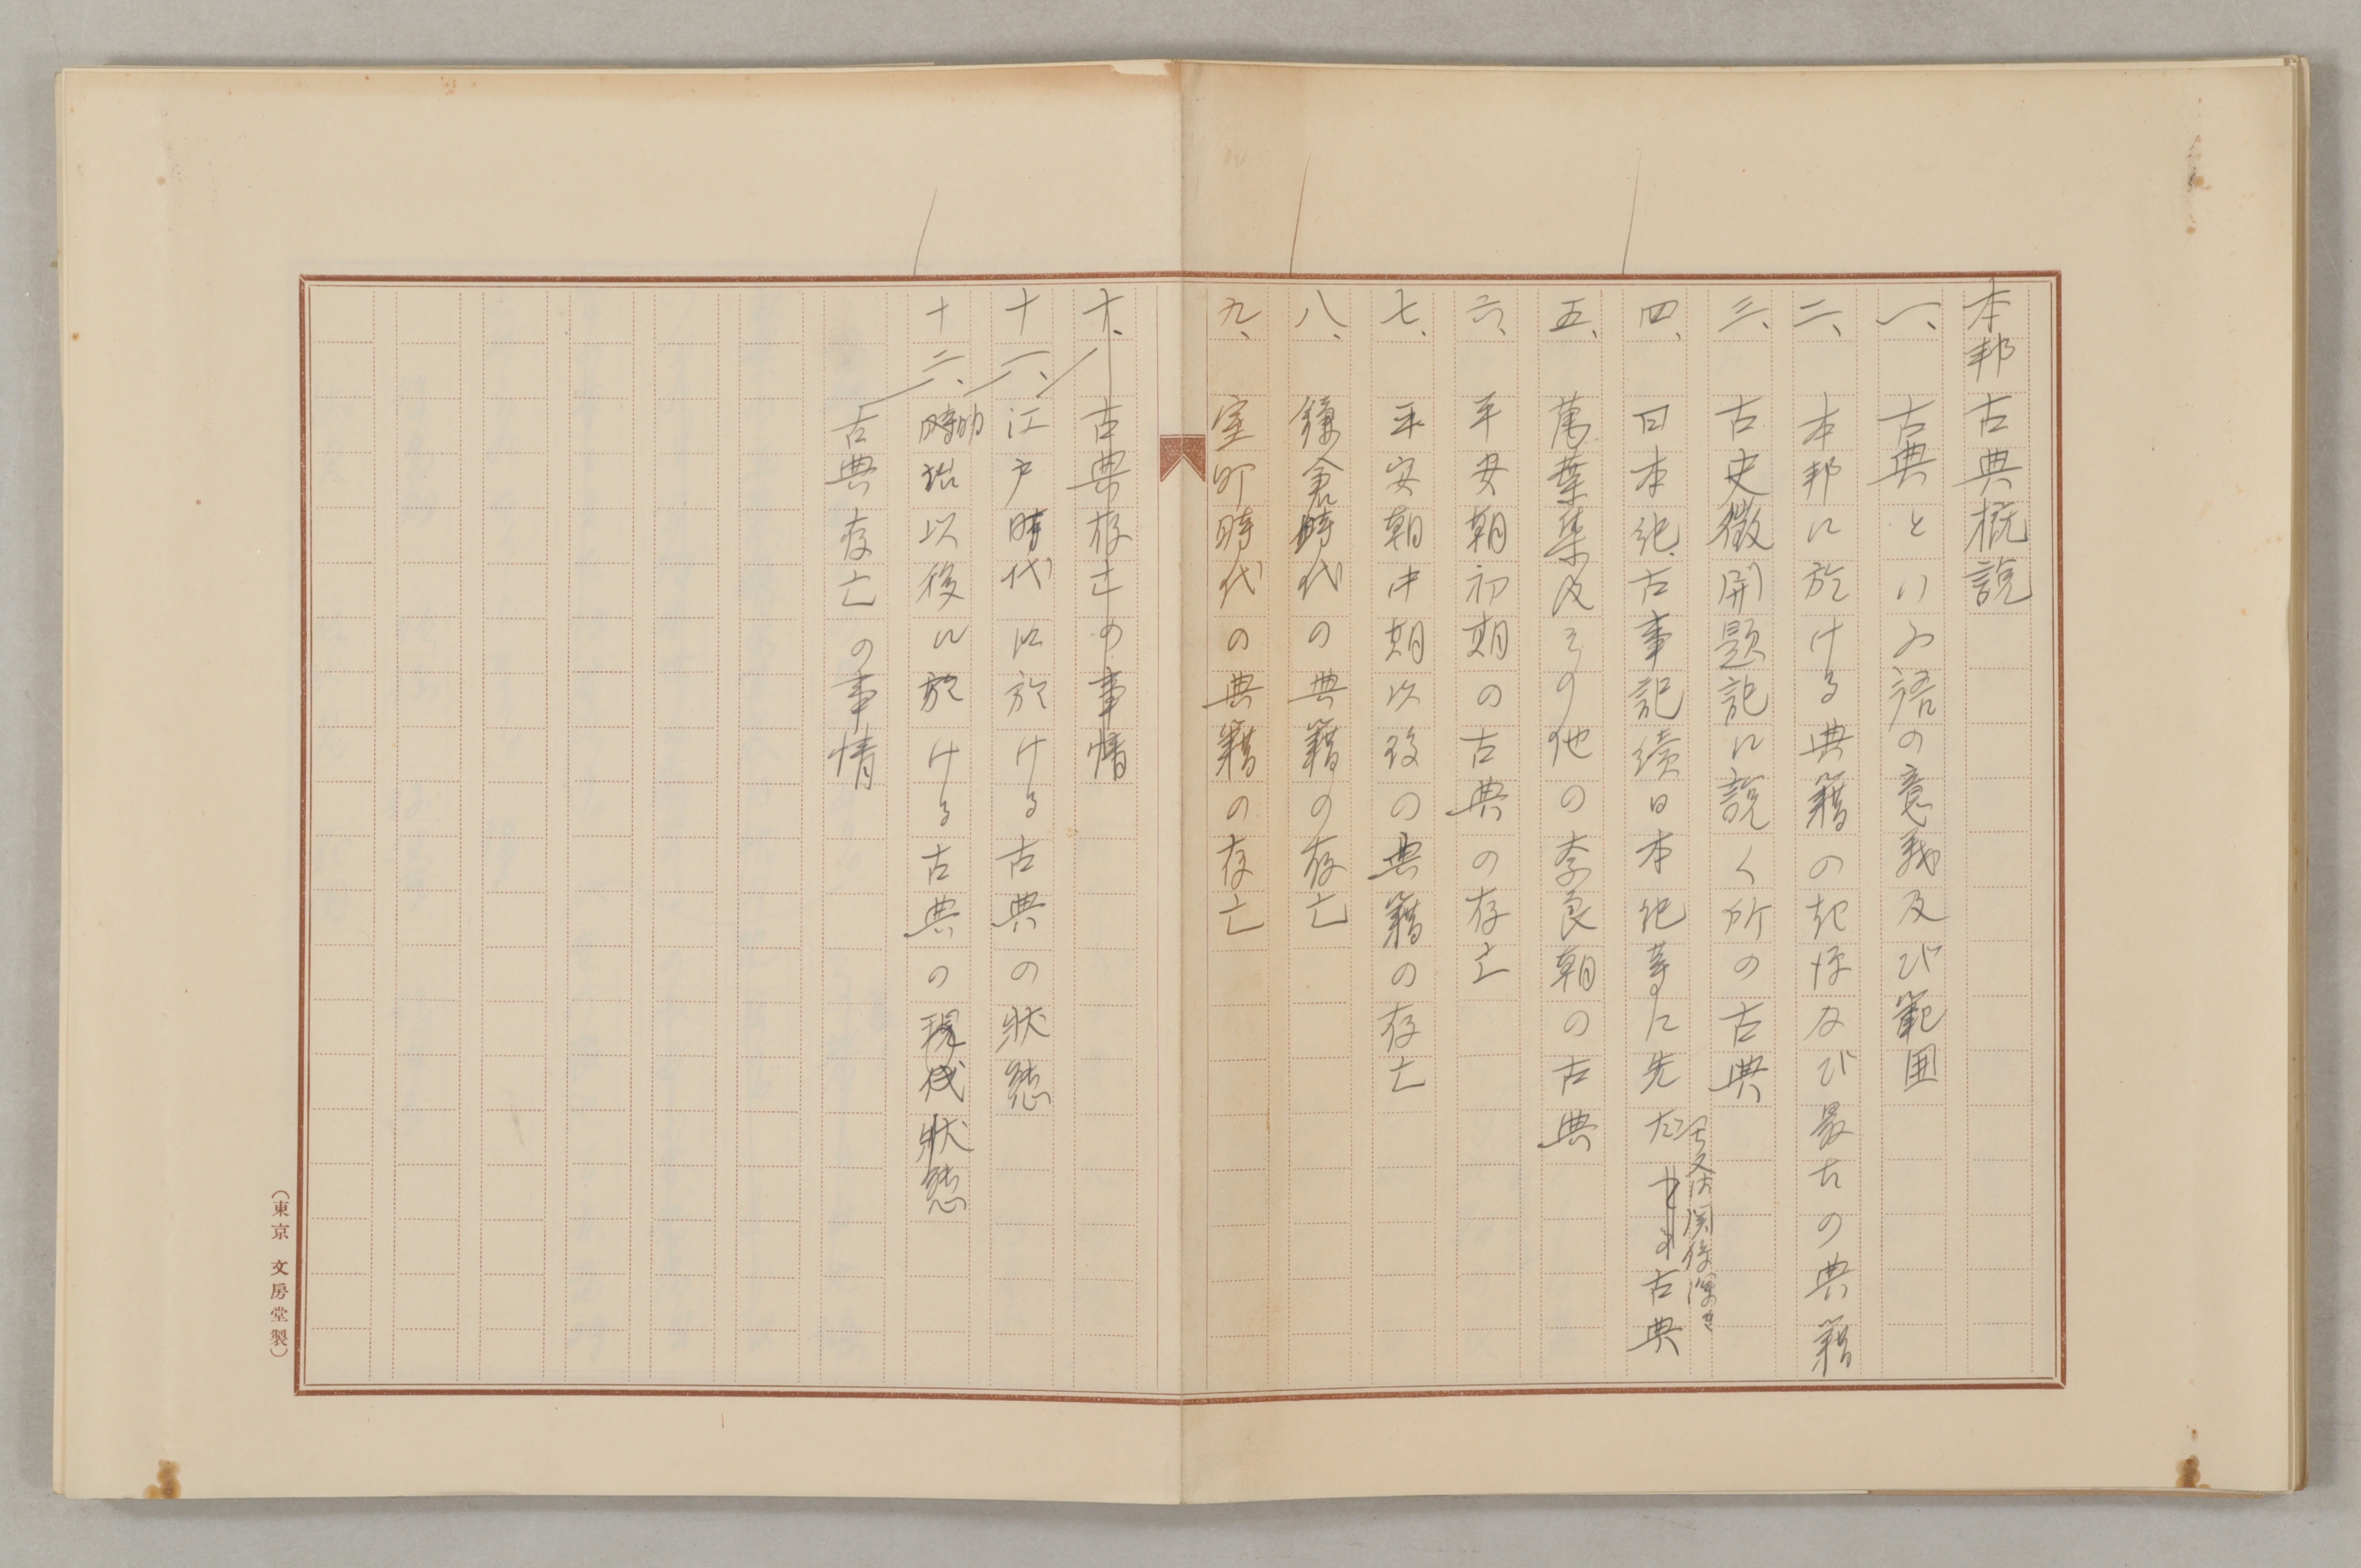 本邦古典概説
一、古典といふ語の意義及び範囲
二、本邦に於ける典籍の起原及び最古の典籍
三、古史徴開題記に説く所の古典
四、日本紀、古事記続日本紀等に先だち又は関係深き古典
五、萬葉集及その他の奈良朝の古典
六、平安朝初期の古典の存亡
七、平安朝中期以後の典籍の存亡
八、鎌倉時代の典籍の存亡
九、室町時代の典籍の存亡
十、古典存亡の事情
十一、江戸時代に於ける古典の状態
十二、明治以後に於ける古典の現状態
古典存亡の事情
(東京 文房堂製)